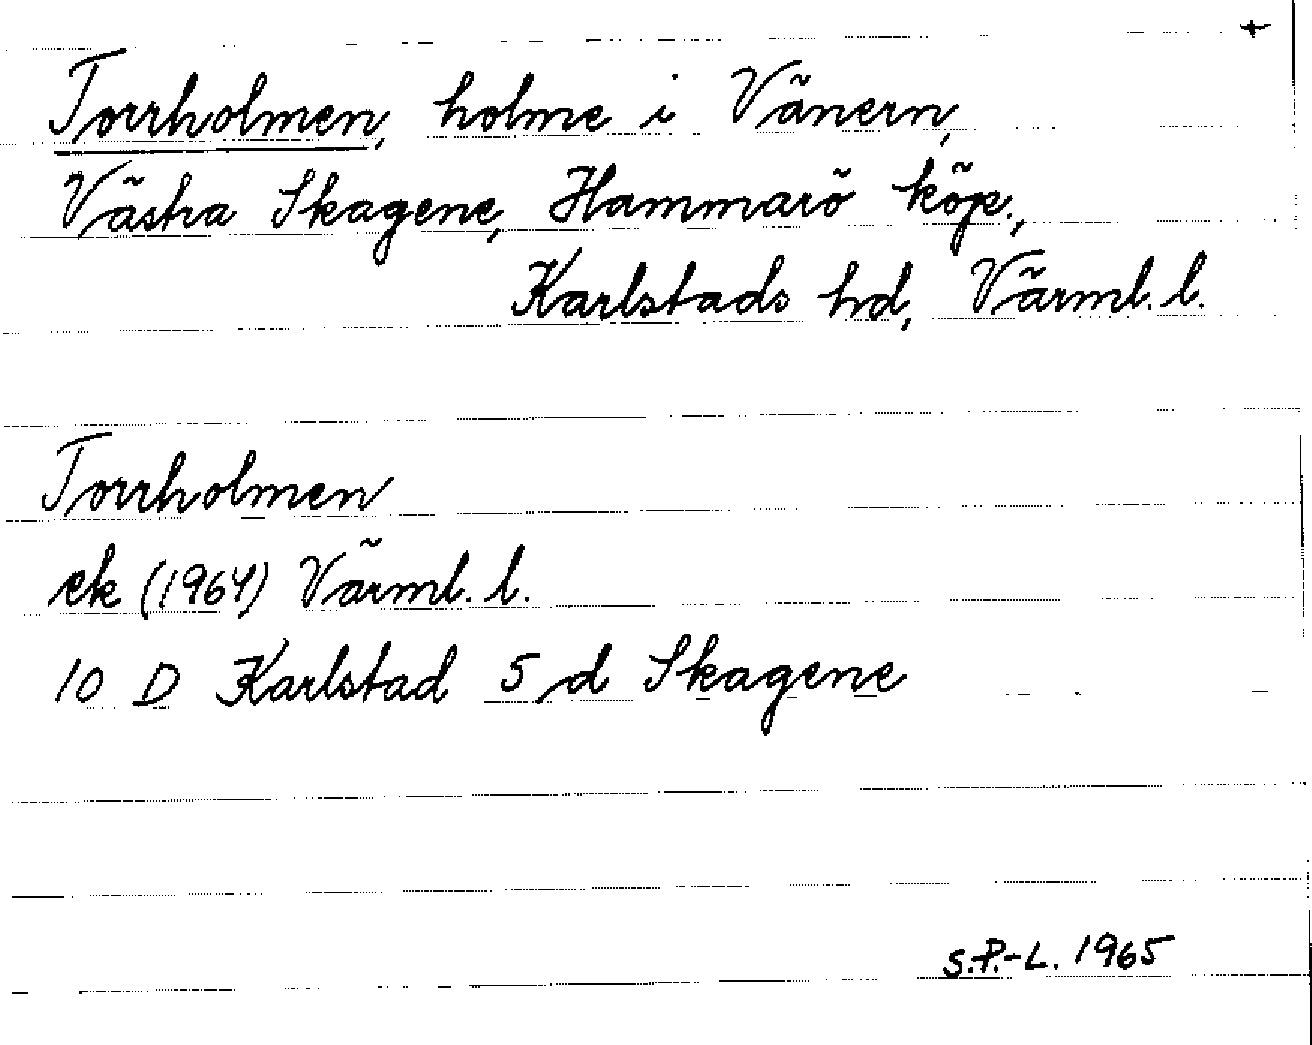 +
Torrholmen, holme i Vänern,
Västra Skagene, Hammarö köp.,
Karlstads hd, Värml. l.
Torrholmen
ek (1964) Värml. l.
10 D Karlstad 5 d Skagene
S.P.-L. 1965